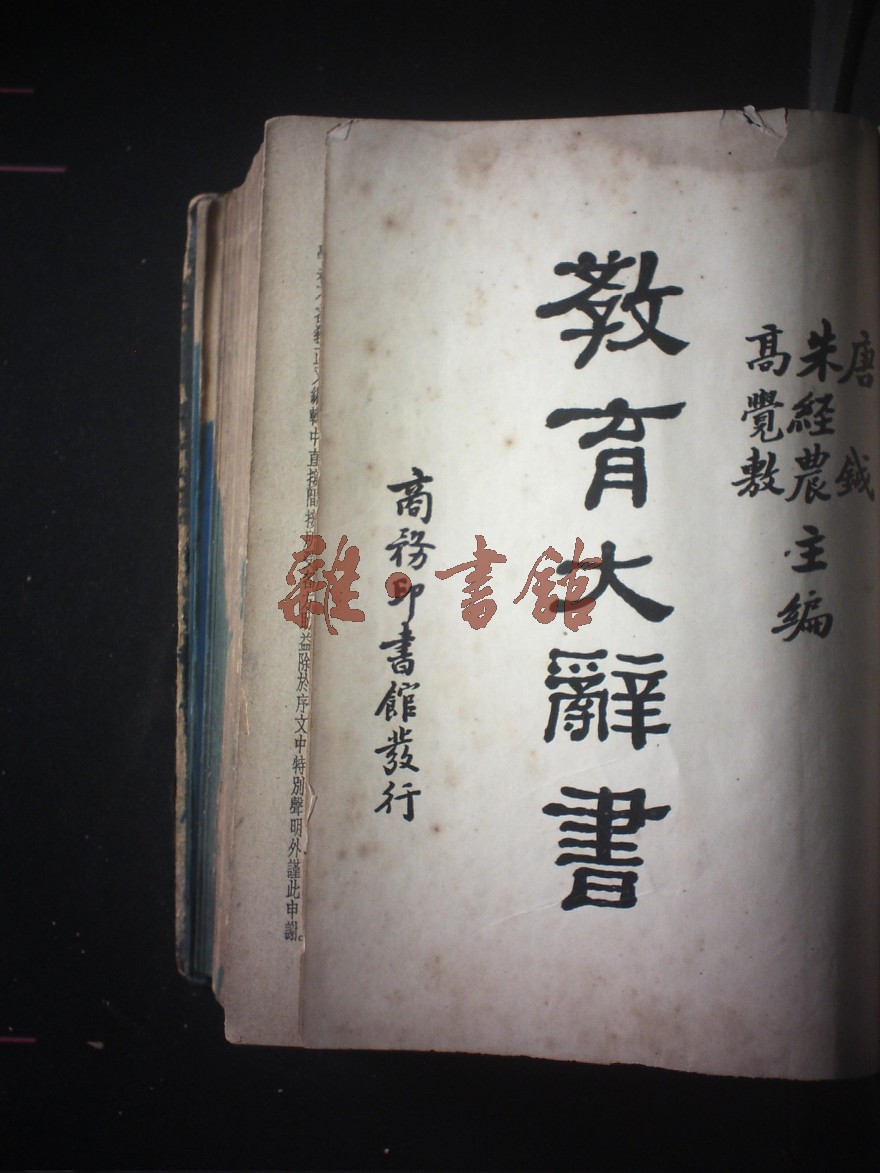 唐鉞
朱経農
高覺敷
主編
教育大辭書
商務印書館發行
雜·書館
中直接間接
益除於序文中特別聲明外謹此申謝。